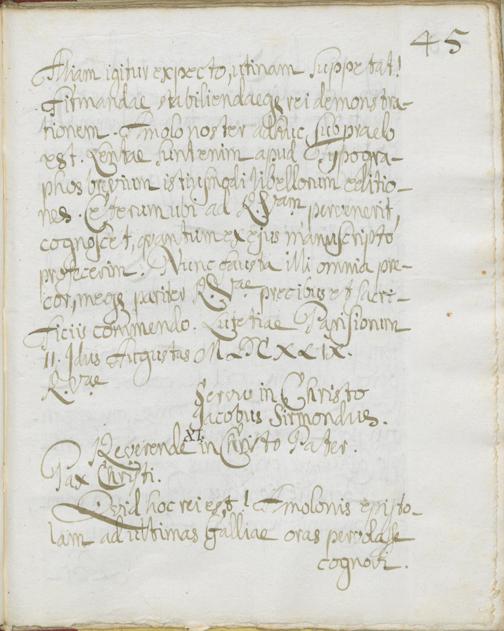 45
Aliam igitur expecto, utinam suppetat!
firmandae stabiliendaeq; rei demonstra-
tionem. Amolo noster adhuc sub praelo
est. Lentae sunt enim apud Typogra-
phos brevium istiusmodi libellorum editio-
nes. Ceterum ubi ad R. Vam pervenerit,
cognoscet, quantum ex ejus manuscripto
profecerim. Nunc fausta illi omnia pre-
cor, meq; pariter R. Vae precibus et sacri-
ficiis commendo. Lutetiae Parisiorum
11. Idus Augustas MDCXLIX.
R. Vae
Servus in Christo
Jacobus Sirmondus.
XI.
Reverende in Christo Pater.
Pax Christi.
Quid hoc rei est! Amolonis episto-
lam ad ultimas Galliae oras
cognovi.